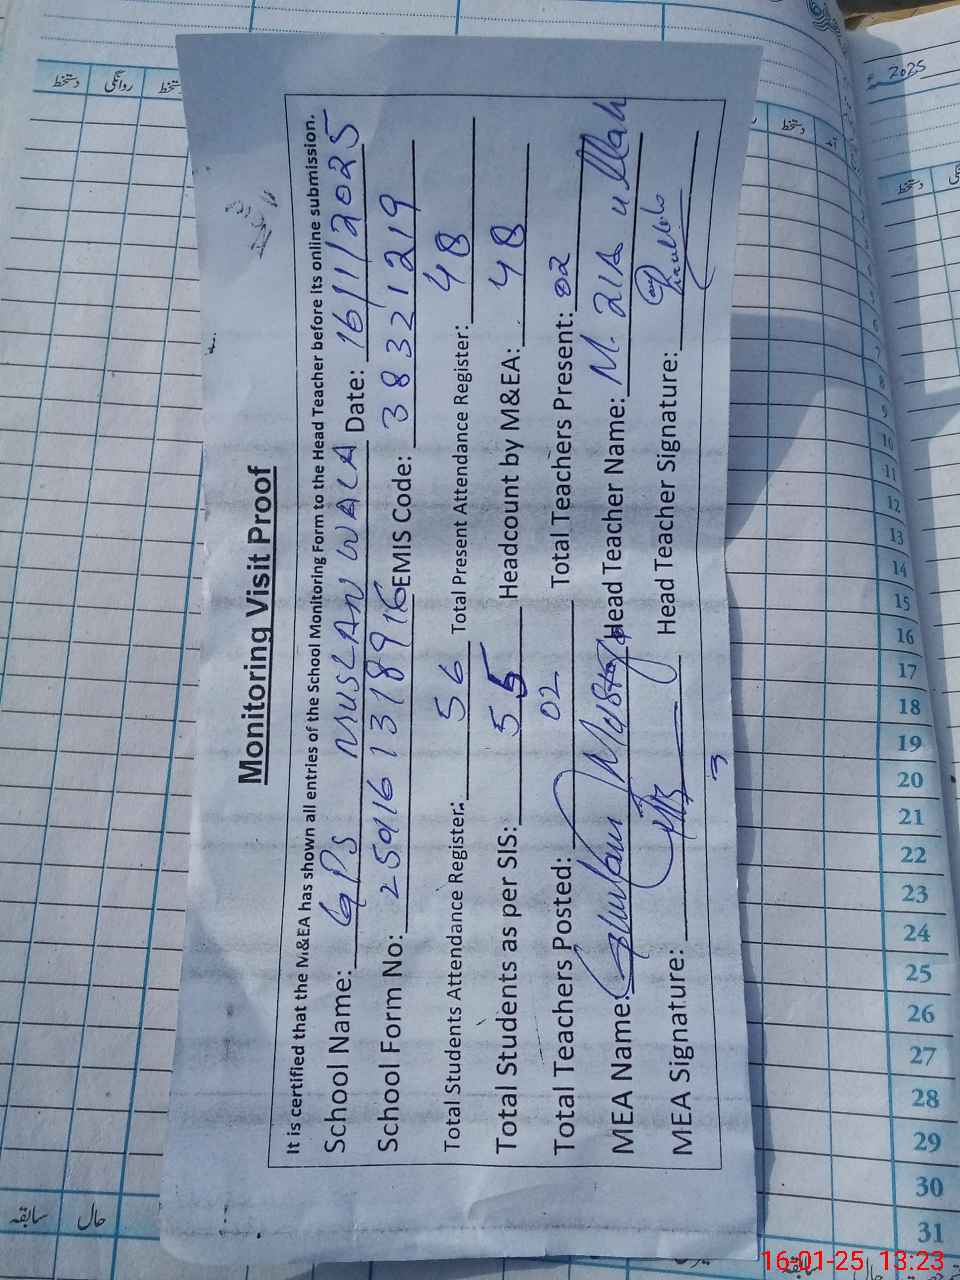 Monitoring Visit Proof
It is certified that the M&EA has shown all entries of the School Monitoring Form to the Head Teacher before its online submission.
School Name: GPS MUSLAN WALA Date: 16/1/2025
School Form No: EMIS Code: 38321219
Total Students Attendance Register: 56 Total Present Attendance Register: 48
Total Students as per SIS: 55 Headcount by M&EA: 48
Total Teachers Posted: 02 Total Teachers Present: 02
MEA Name: Ghulam Head Teacher Name: M. Zia ullah
MEA Signature: Head Teacher Signature:
3
دستخط
روانگی
دستخط
سابقہ
حال
2025
دستخط
آمد
دستخط
6
7
8
9
10
11
12
13
14
15
16
17
18
19
20
21
22
23
24
25
26
27
28
29
30
31
سابقہ
حال
16-01-25 13:23